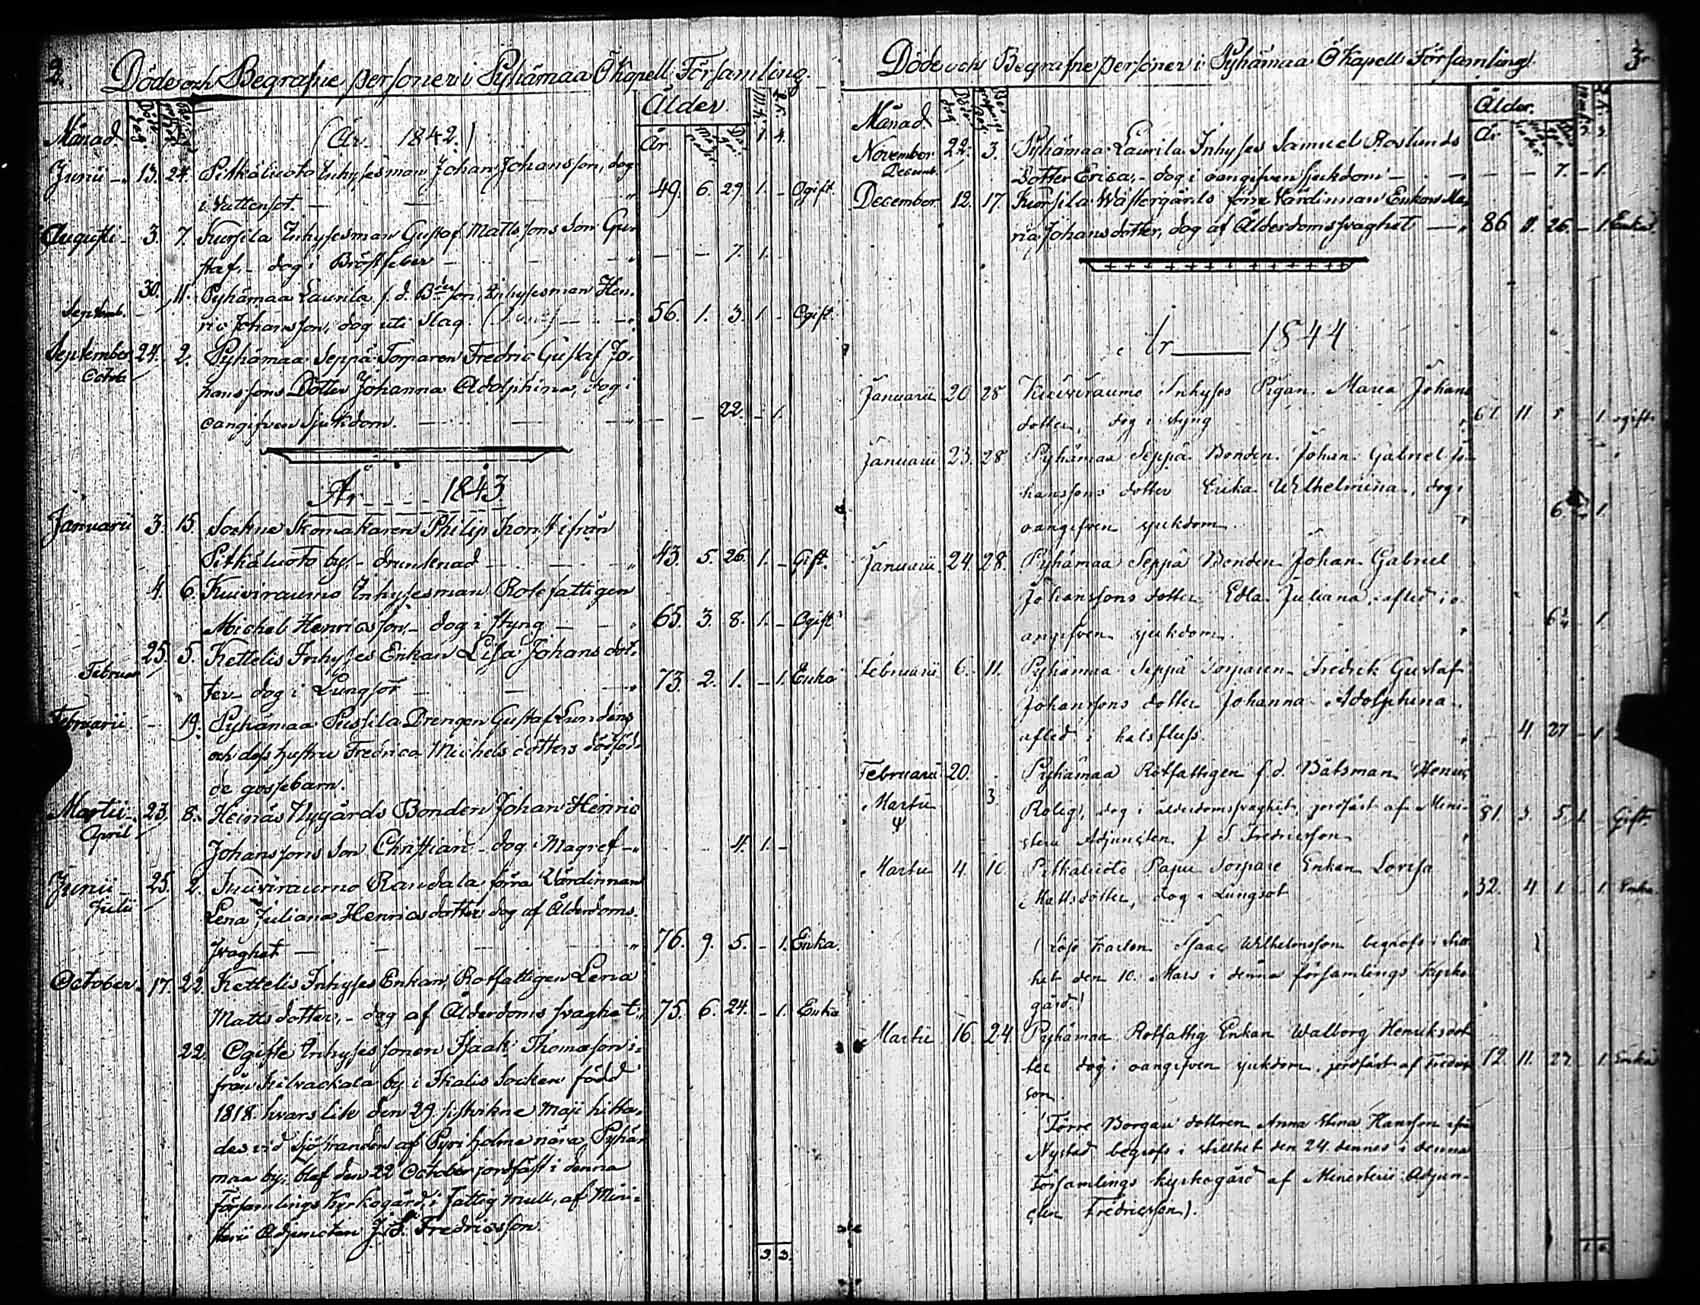 2.
Döde och Begrafne personer i Pyhämaa Ö Kapell Församling.
Månad
Ålder.
(År 1842.)
År.
M.k. Q.k.
Junii 13. 24. Pitkäluoto Inhysesman Johan Johansson, dog
i Vattensot 49. 6. 29. 1. - Ogift.
Augusti 3. 7. Kursila Inhysesman Gustaf Mattssons Son Gu-
staf, - dog i Bröstfeber - - 7. 1.
30. 11. Pyhämaa Laurila f. d. Båtson, Inhysesman Hen-
Septemb. ric Johansson, dog uti Slag. 56. 1. 3. 1 - Ogift.
September 24. 2. Pyhämaa Seppä Torparen Fredric Gustaf Jo-
Octob. hanssons Dotter Johanna Adolphina, dog i
oangifven Sjukdom. - - 22. - 1.
År 1843
Januarii 3. 15. Sockne Skomakaren Philip Konst ifrån
Pitkäluoto by, - drunknad 43. 5. 26. 1. - Gift.
4. 6. Kuiviraumo Inhysesman Rotefattigen
Michel Henricsson - dog i styng 65. 3. 8. 1. - Ogift
25. 5. Kettelis Inhyses Enkan Lisa Johans dot-
Februar ter dog i Lungsot 73. 2. 1. - 1. Enka
Februarii - 19. Pyhämaa Pussila Drengen Gustaf Lundens
och dess hustru Fredrica Michels dotters dödföd-
de gossebarn.
Martii 23. 8. Heinäs Nygårds Bonden Johan Henric
April Johanssons Son Christian - dog i Magref 4. 1. -
Junii 25. 2. Kuiviraumo Randala förra Värdinnan
Julii Lena Juliana Henricsdotter dog af Ålderdoms-
svaghet 76. 9. 5. - 1. Enka.
October 17. 22. Kettelis Inhyses Enkan, Rotfattigen Lena
Matts dotter, - dog af Ålderdoms svaghet 75. 6. 24. - 1. Enka
22. Ogifte Inhyses sonen Isaak Thomasson i-
från by i Ikalis Socken född
1818. hvars lik den 29. sistvikne Maji hitta-
des vid Sjöstranden af Pyri holme nära Pyhä-
maa by; blef den 22 October jordfäst i denna
Församlings Kyrkogård, i fattig mull, af Mini-
sterii Adjuncten J. S. Fredricsson.
3. 3.
3.
Döde och Begrafne personer i Pyhämaa Ö Kapell Församling.
Månad
Ålder.
År
November 22. 3. Pyhämaa Laurila Inhyses Samuel Roslunds
Decemb. Dotter Erica, - dog i oangifven sjukdom - - 7. - 1.
December 12. 17. Kursila Wästergårds förra Värdinnan Enkan Ma-
ria Johansdotter, dog af Ålderdomssvaghet 86. 11. 26. - 1. Enka.
År 1844
Januarii 20 28 Kuiviraumo Inhyses Pigan Maria Johans
dotter, dog i styng 61. 11 8 - 1. ogift
Januarii 23. 28 Pyhämaa Seppä Bonden Johan Gabriel Jo-
hanssons dotter Erika Wilhelmina, dog i
oangifven sjukdom. 6 1
Januarii 24. 28. Pyhämaa Seppä Bonden Johan Gabriel
Johanssons dotter Edla Juliana, afled i o-
angifven sjukdom. 1
Februarii 6. 11. Pyhämaa Seppä Torparen Fredrik Gustaf
Johanssons dotter Johanna Adolphina
afled i halsfluss. 4 27 - 1
Februarii 20. Pyhämaa Rotfattigen f. d. Båtsman Henric
Martii 3 Rolig, dog i ålderdomssvaghet, jordfäst af Mini- 81. 3 5. 1. - Gift.
sterii Adjuncten J S Fredricsson
Martii 4. 10. Pitkäluoto Papu Torpare Enkan Lovisa
Mattsdotter, dog i Lungsot 32. 4 1 - 1 Enka.
(Löse Karlen Isaac Wilhelmsson begrofs i still-
het den 10. Mars i denna församlings kyrko-
gård)
Martii 16. 24. Pyhämaa Rotfattig Enkan Walborg Henriksdot-
ter dog i oangifven sjukdom, jordfäst af Fredric- 72. 11. 27. 1. Enka
son.
(Förre Borgare dottren Anna Stina Hansson ifrån
Nystad begrofs i stillhet den 24 dennes i denna
Församlings kyrkogård af Ministerii Adjun-
cten Fredricsson).
1. 6.